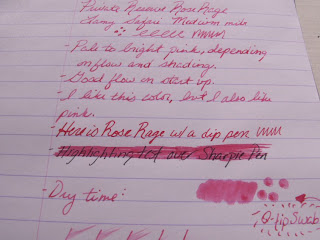 Private Reserve Rose Rage
Lamy Safari Medium nib
- Pale to bright pink, depending
on flow and shading.
- Good flow on start up.
- I like this color, but I also like
pink.
- Here is Rose Rage w/ a dip pen
- Highlighting Sharpie Pen
- Dry time:
Q-tip Swab